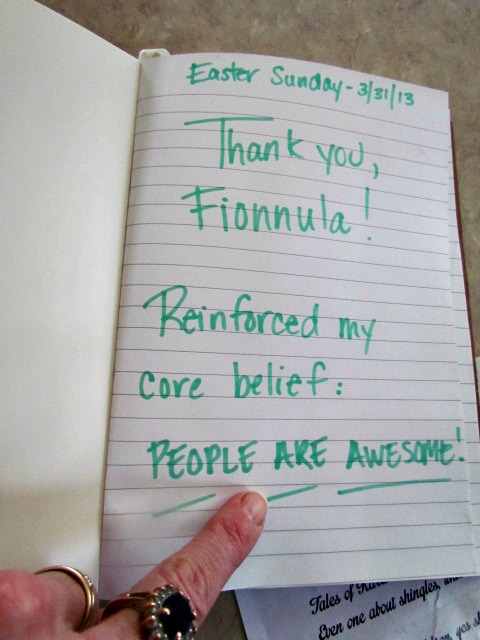 Easter Sunday - 3/31/13
Thank you,
Fionnula!
Reinforced my
core belief:
PEOPLE ARE AWESOME!
Tales of
Even one about shingles,
yes